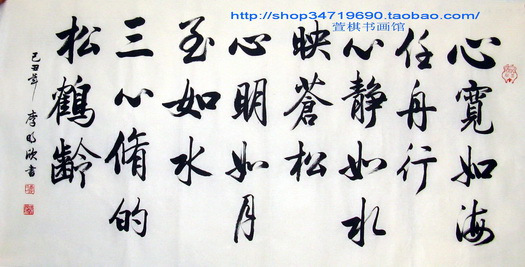 http://shop34719690.taobao.com/
萱棋书画馆
心寬如海
任舟行
心靜如水
映蒼松
心明如月
至如水
三心脩的
松鶴齡
己丑年 李明欣書